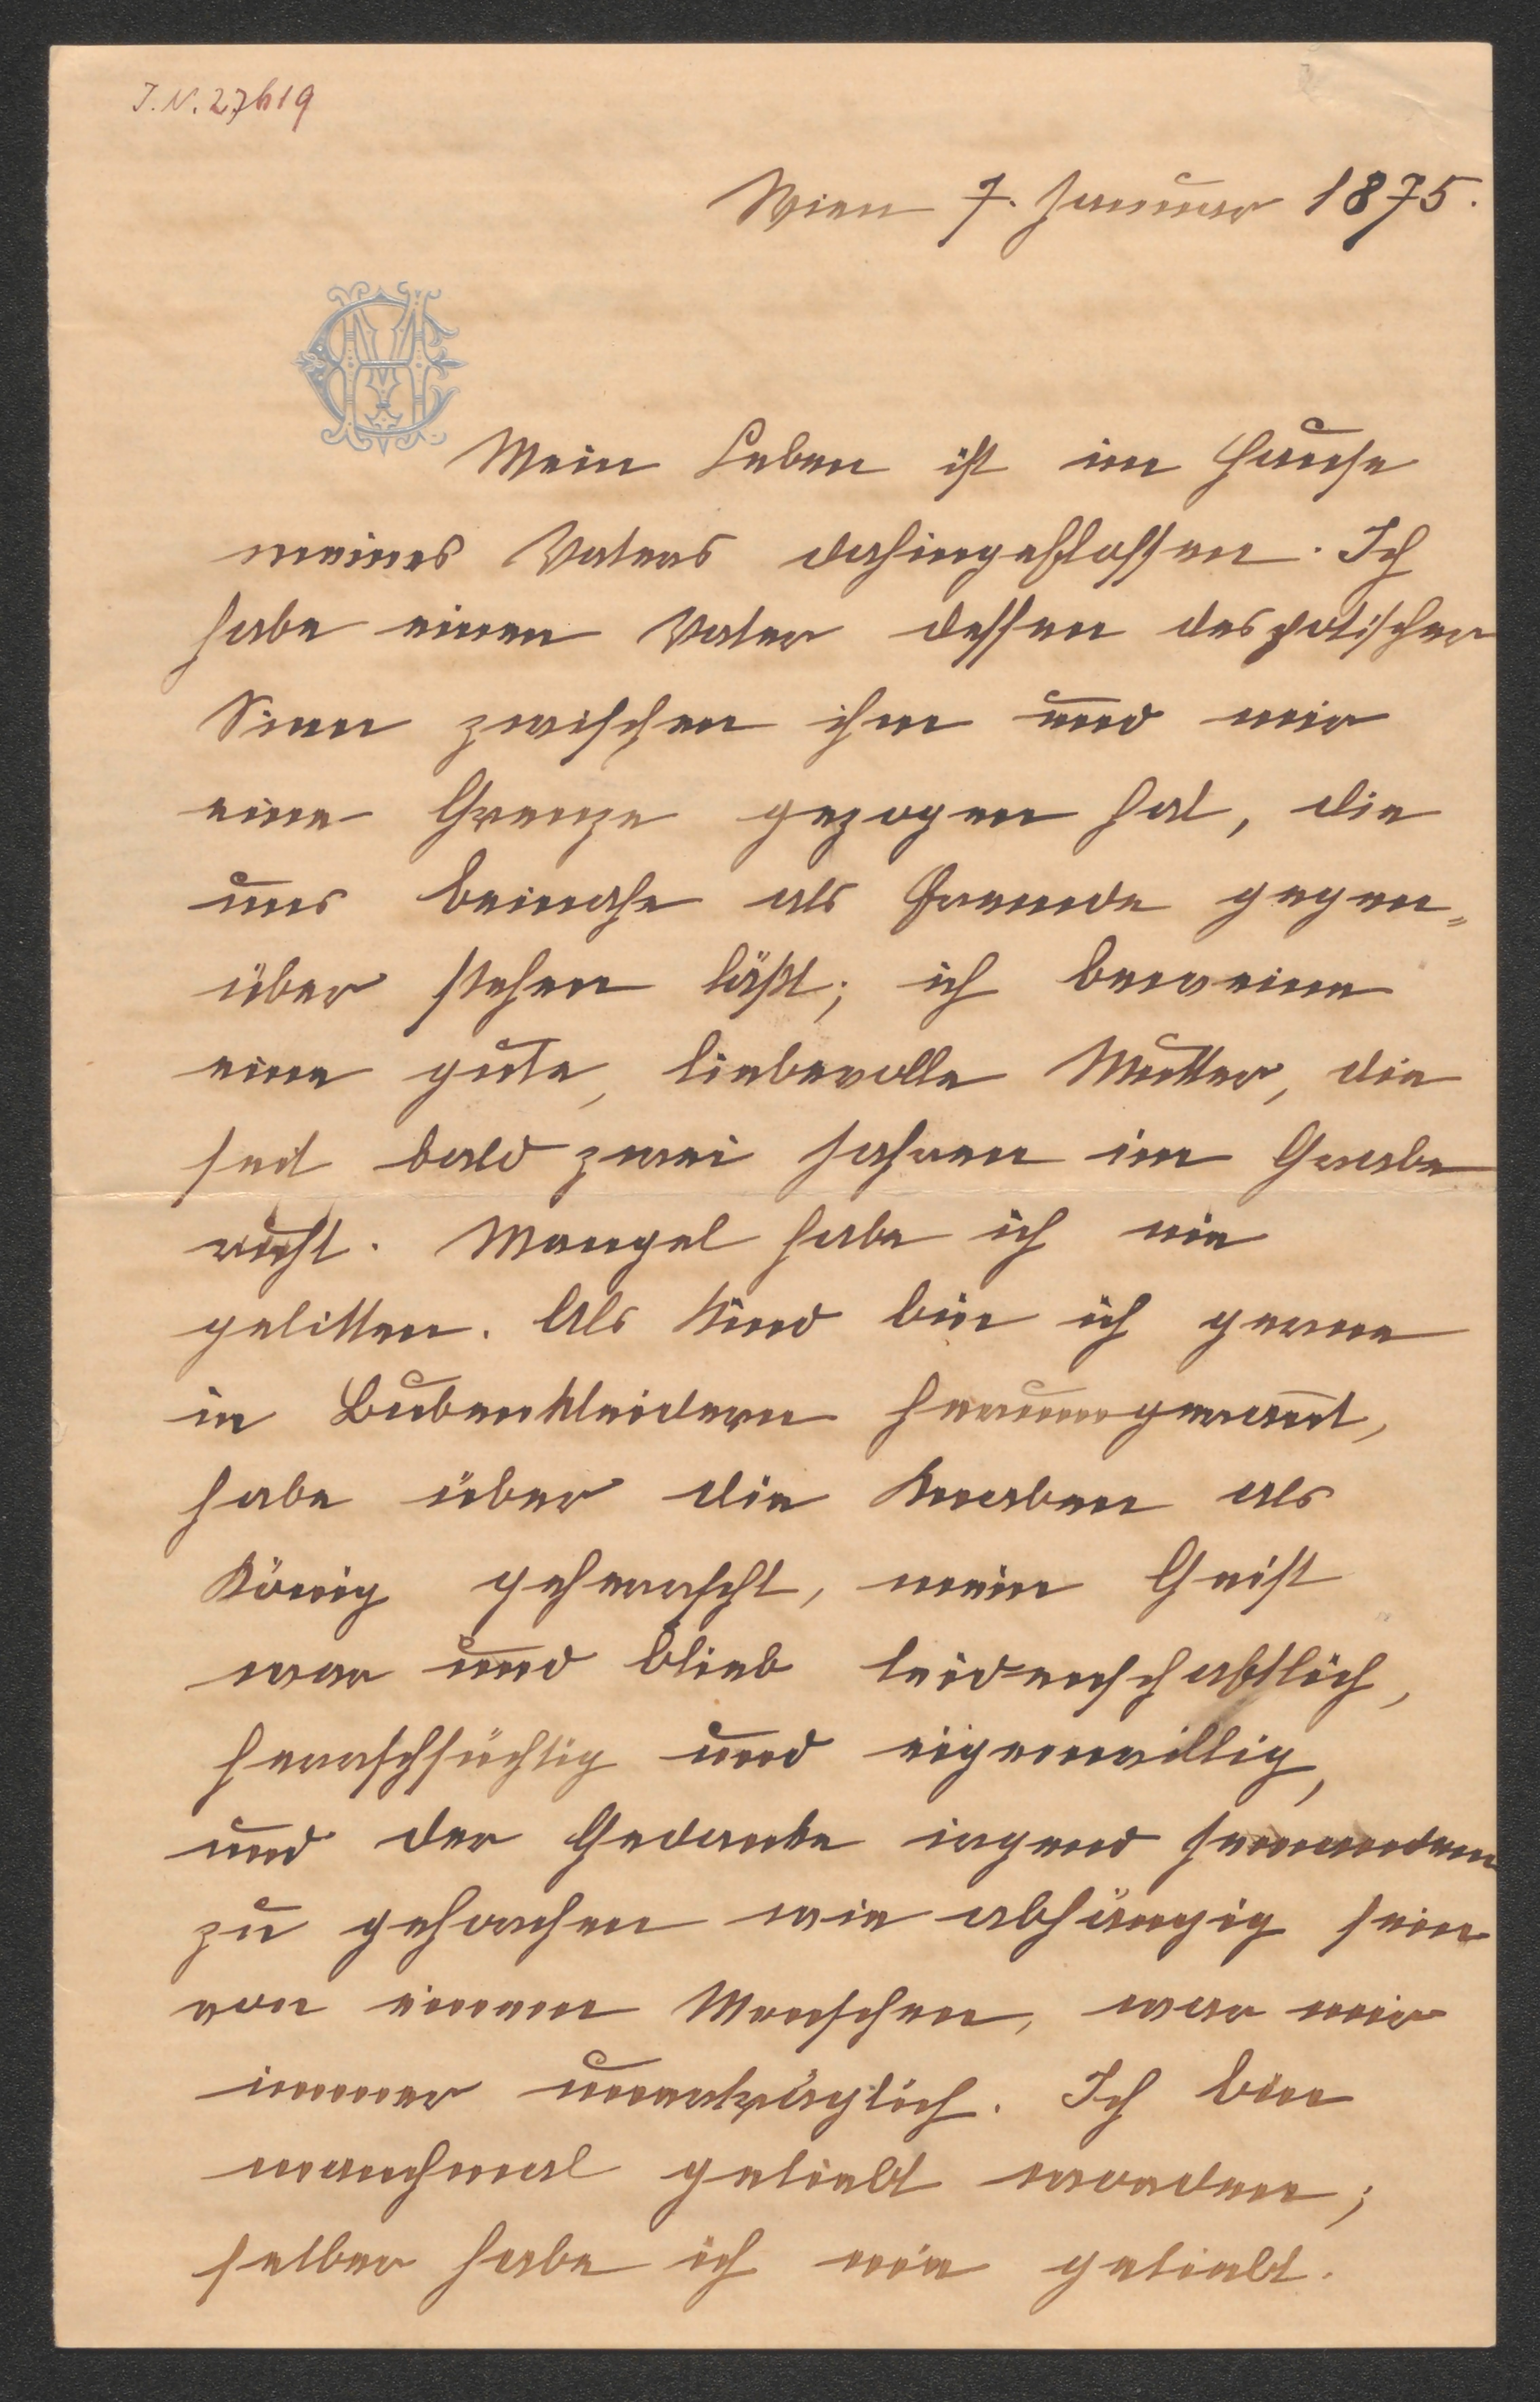 I.N. 27619
Wien 7. Januar 1875.
Mein Leben ist im Hause
meines Vaters dahingeflossen. Ich
habe einen Vater dessen despotischer
Sinn zwischen ihm und mir
eine Grenze gezogen hat, die
uns beinahe als Fremde gegen„
über stehen läßt; ich beweine
eine gute, liebevolle Mutter, die
seit bald zwei Jahren im Grabe
ruht. Mangel habe ich nie
gelitten. Als Kind bin ich gerne
in Bubenkleidern herumgerannt,
habe über die Knaben als
König geherrscht, mein Geist
war und blieb leidenschaftlich,
herrschsüchtig und eigenwillig,
und der Gedanke irgend jemandem
zu gehorchen wie abhängig sein
von einem Menschen, war mir
immer unerträglich. Ich bin
manchmal geliebt worden;
selber habe ich nie geliebt.